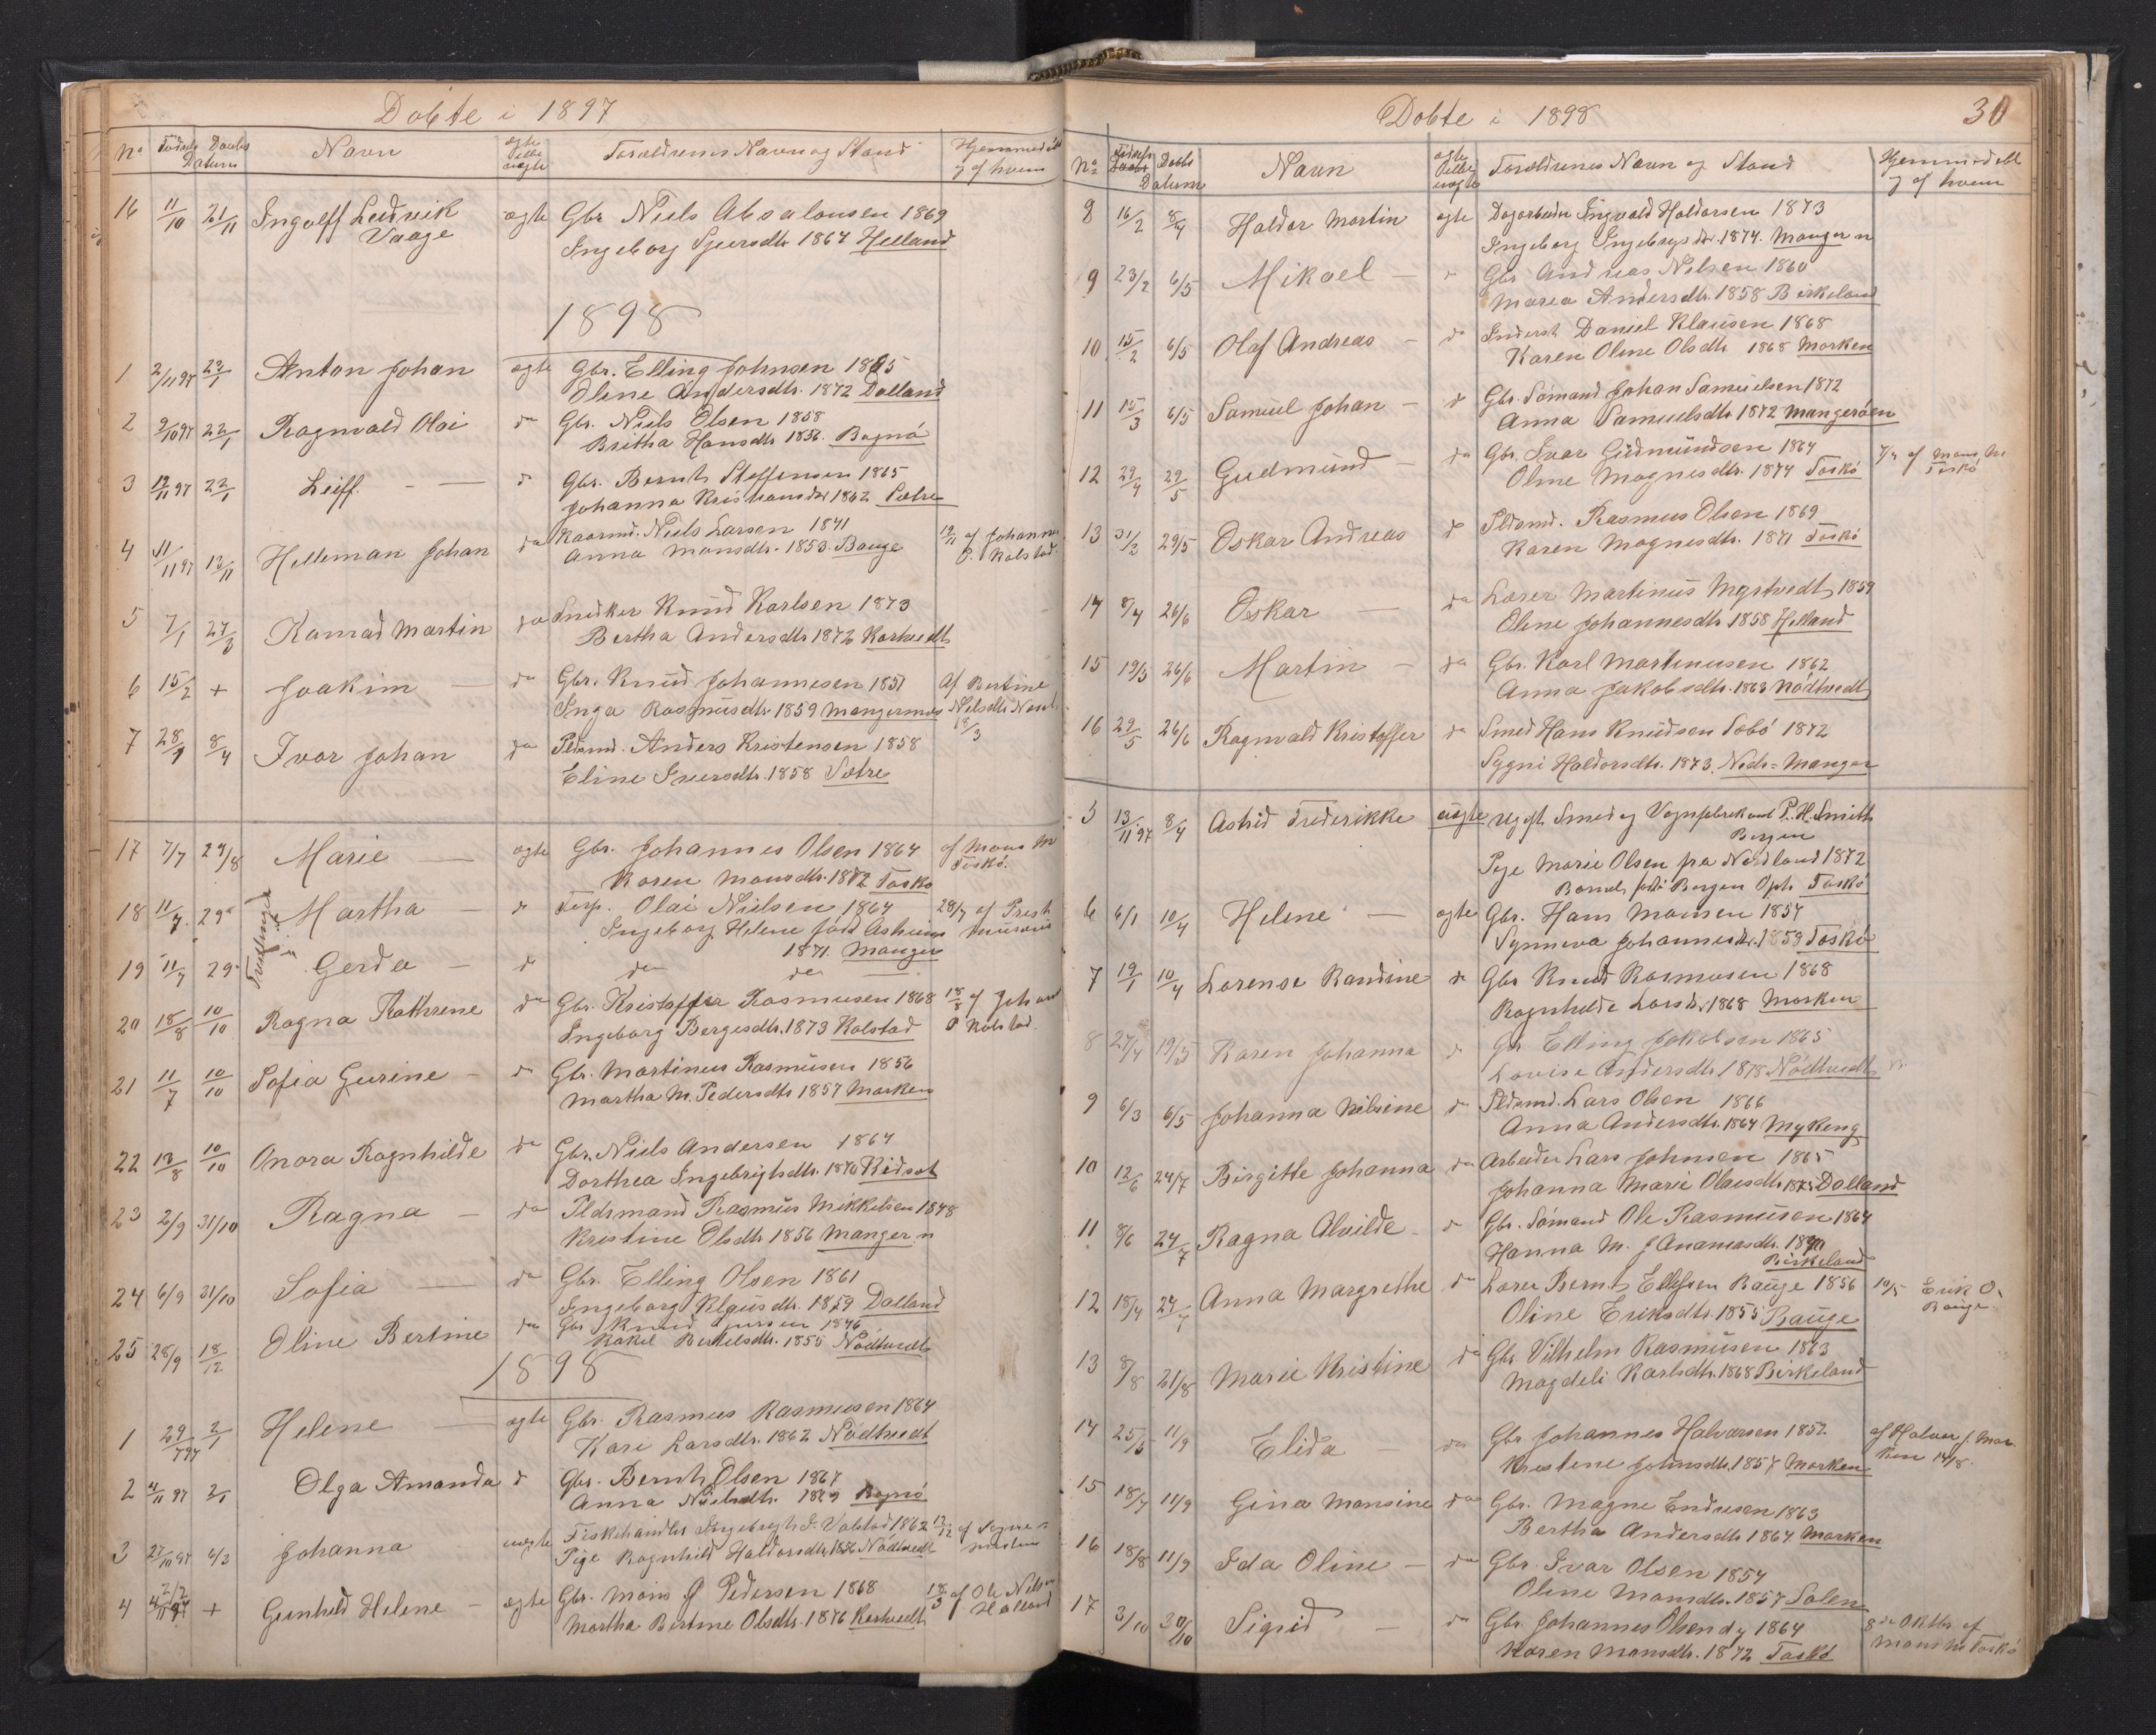 Døbte i 1897
No Fødsels Daabs Datum Navn ægte eller uægte Forældrenes Navn og Stand Hjemmedøbt og af hvem
16 11/10 21/11 Ingolff Ludvik ægte Gbr. Niels Absalonsen 1869
Vaage Ingeborg Sjursdtr 1867 Helland
1898
1 2/11 97 23/1 Anton Johan ægte Gbr. Elling Johnsen 1865
Oline Andersdtr. 1872 Dalland
2 9/10 97 22/1 Ragnvald Olai do Gbr. Niels Olsen 1858
Britha Hansdtr 1856. Bognø
3 19/11 97 22/1 Leiff - d Gbr. Bernt Steffensen 1865
Johanna Kristiansdtr 1862 Sætre
4 11/11 97 13/11 Helleman Johan do Kaarmd. Niels Larsen 1841 19/11 af Johannes
Anna Monsdtr. 1853. Bauge P. Kolstad
5 7/1 27/3 Konrad Martin do Snedker Knud Karlsen 1873
Bertha Andersdtr 1872 Kartvedt
6 15/2 + Joakim - do Gbr. Knud Johannesen 1851 Af Bertine
Inga Rasmusdtr. 1859 Mangernæs Nilsdtr
18/3
7 28/1 8/4 Ivar Johan do Pldsmd. Anders Kristensen 1858
Eline Iversdtr. 1858 Sætre
17 7/7 29/8 Marie - ægte Gbr. Johannes Olsen 1864 af Mons M
Karen Monsdtr. 1872 Toskø Toskø.
18 11/7 29 Martha - d Olai Nielsen 1864 28/7 af Presh
Ingeborg Helene født
1871. Manger
Tvillinger
19 11/7 29 Gerda - d do do
20 18/8 10/10 Ragna Kathrine do Gbr. Kristoffer Rasmussen 1868 18/8 af Johan
Ingeborg Bergesdtr. 1873 Kolstad P Kolstad.
21 11/7 10/10 Sofia Gurine - d Gbr. Martinus Rasmusen 1856
Martha M. Pedersdtr 1857 Marken
22 13/8 10/10 Onora Ragnhilde do Gbr. Niels Andersen 1864
Dorthea Ingebrigtsdtr. 1870 Ridsot
23 2/9 31/10 Ragna - do Pldsmand Rasmus Mikkelsen 1848
Kristine Olsdtr 1856 Manger n
24 6/9 31/10 Sofia - do Gbr. Elling Olsen 1861
Ingeborg Klausdtr. 1859 Dalland
25 28/9 18/12 Oline Bertine do Gbr Knud 1846
Rakel Bertelsdtr. 1855 Nødtvedt
1898
1 29/7 97 2/1 Helene - ægte Gbr. Rasmus Rasmusen 1864
Kari Larsdtr. 1862 Nødtvedt
2 4/11 97 2/1 Olga Amanda d Gbr. Bernt Olsen 1867
Anna Nielsdtr. 1869 Bognø
3 27/10 97 6/3 Johanna uægte Fiskehandler Ingebrigt J. Valstad 1862 13/12 af
Pige Ragnhild Haldorsdtr 1856 Nødtvedt
4 + Gunhild Helene - ægte Gbr. Mons Ø Pedersen 1868 18/3 af Ole Nilsen
Martha Bertine Olsdtr. 1876 Kartvedt Helland
Døbte i 1898 30
No Fødsels Daabs Døbte Datum Navn ægte eller uægte Forældrenes Navn og Stand Hjemmedøbt og af hvem
8 16/2 8/4 Haldor Martin ægte Dagarbeider Ingvald Haldorsen 1873
Ingeborg Ingebrigsdtr. 1874. Manger n
9 23/2 6/5 Mikael - d Gbr Andreas Nilsen 1860
Marea Andersdtr. 1858 Birkeland
10 15/2 6/5 Olaf Andreas - do Inderst Daniel Klausen 1868
Karen Oline Olsdtr 1868 Marken
11 15/3 6/5 Samuel Johan - d Gbr. Sømand Johan Samuelsen 1872
Anna Samuelsdtr 1872 Mangerøen
12 29/4 29/5 Gudmund - do Gbr. Ivar Gudmundsen 1864 af Mons M
Oline Magnesdtr. 1874 Toskø Toskø
13 31/3 29/5 Oskar Andreas d Pldsmd. Rasmus Olsen 1869
Karen Magnesdtr. 1871 Toskø
14 8/4 26/6 Oskar - do Lærer Martinus Myrtvedt 1859
Oline Johannesdtr 1858 Helland
15 19/5 26/6 Martin - do Gbr. Karl Martinusen 1862
Anna Jakobsdtr. 1863 Nødtvedt
16 29/5 26/6 Ragnvald Kristoffer do Smed Hans Knudsen Søbø 1872
Sygni Haldorsdtr. 1873. Nedr=Manger
5 13/11 97 8/4 Astrid Frederikke uægte Ugift Smed og Vognfabrikant P. H. Smith
Bergen
Pige Marie Olsen fra Nordland 1872
Barnet født i Bergen Oph. Toskø
6 6/1 10/4 Helene - ægte Gbr. Hans Monsen 1854
Synneva Johannesdtr. 1859 Toskø
7 19/1 10/4 Lorense Randine d Gbr Knud Rasmusen 1868
Ragnhilde Larsdtr 1868 Marken
8 27/4 19/5 Karen Johanna d Gbr Elling Jakobsen 1865
Lovise Andersdtr. 1878 Nødtvedt
9 6/3 6/5 Johanna Nilsine d Pldsmd. Lars Olsen 1866
Anna Andersdtr. 1864 Mykeng
10 12/6 24/7 Birgitte Johanna do Arbeider Lars Johnsen 1865
Johanna Marie Olaisdtr 1875 Dalland
11 8/6 24/7 Ragna Alvilde - d Gbr. Sømand Ole Rasmusen 1864
Hanna M. J Ananiasdtr. 1870
Birkeland
12 18/4 24/7 Anna Margrethe do Lærer Bernt Ellefsen Bauge 1856 10/5 Erik O.
Oline Eriksdtr. 1855 Bauge Bauge.
13 8/8 21/8 Marie Kristine do Gbr Vilhelm Rasmusen 1863
Magdeli Karlsdtr. 1868 Birkeland
14 25/5 11/9 Elida - do Gbr Johannes Halvorsen 1852 af Halvor J. Mar
Kristene Johnsdtr. 1857 Marken ken 14/8
15 18/7 11/9 Gina Monsine do Gbr. Magne Endresen 1863
Bertha Andersdtr 1864 Marken
16 18/8 11/9 Ida Oline - do Gbr. Ivar Olsen 1854
Oline Monsdtr. 1857 Solen
17 3/10 30/10 Sigrid - do Gbr Johannes Olsen dy 1864 8de Oktbr af
Karen Monsdtr. 1872 Toskø Mons M Toskø